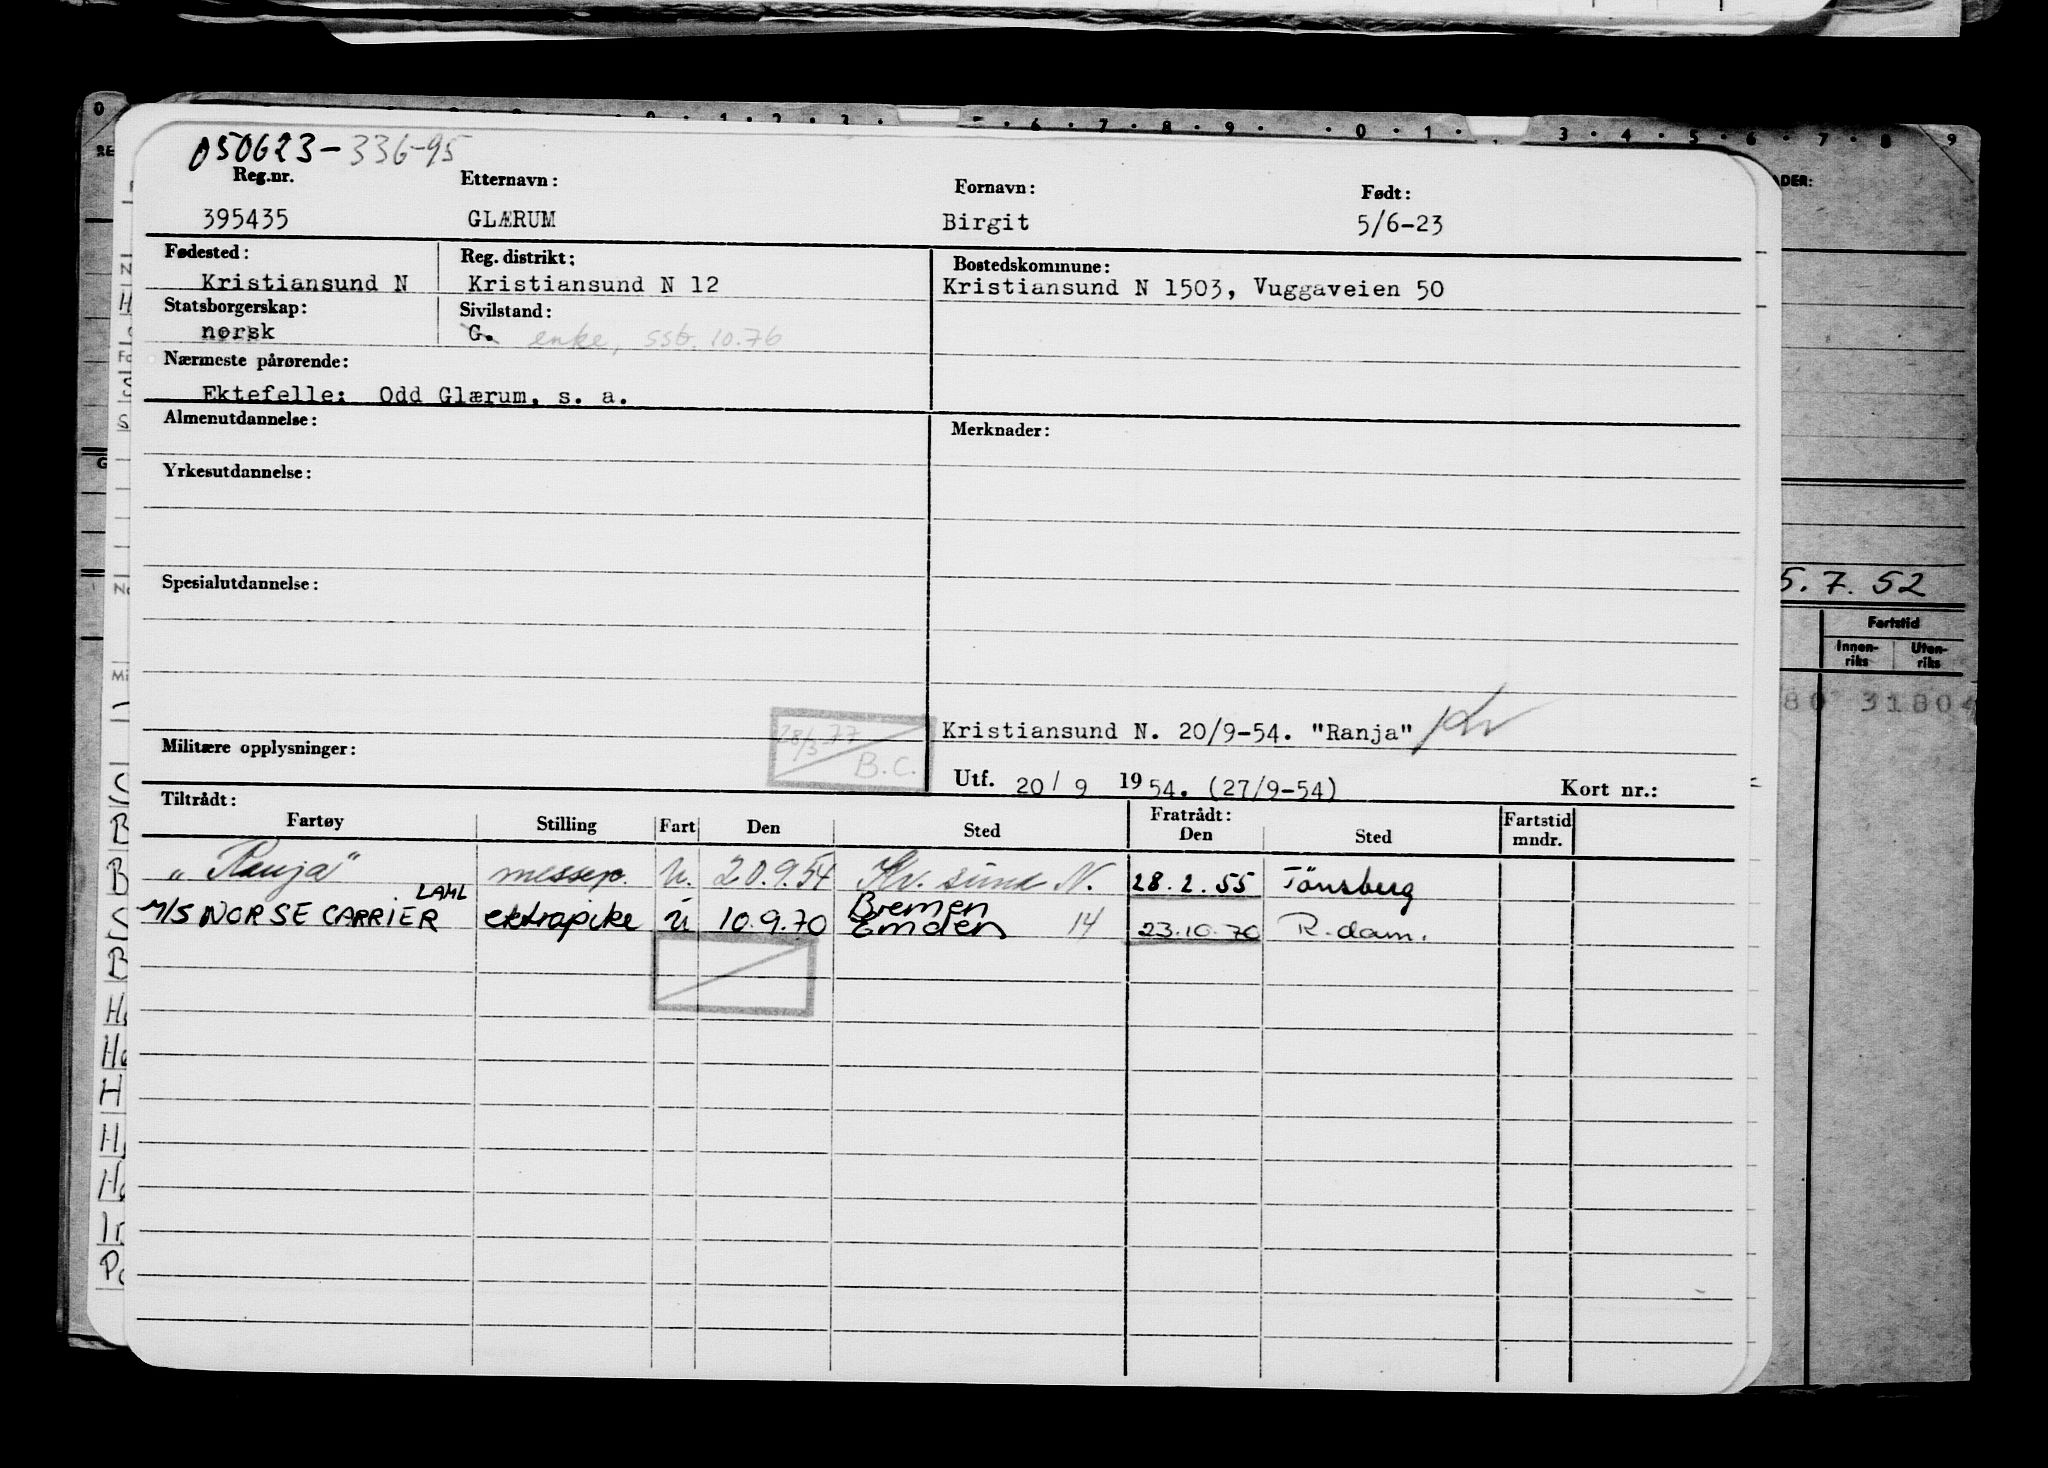 050623-336-95
Reg.nr. Etternavn: Fornavn: Født:
395435 GLÆRUM Birgit 5/6-23
Fødested: Reg. distrikt: Bostedskommune:
Kristiansund N Kristiansund N 12 Kristiansund N 1503, Vuggaveien 50
Statsborgerskap: Sivilstand:
norsk G. enke, ssb. 10.76
Nærmeste pårørende:
Ektefelle: Odd Glærum, s. a.
Almenutdannelse: Merknader:
Yrkesutdannelse:
Spesialutdannelse:
5.7.52
Fartstid
Innen-riks Uten-riks
Kristiansund N. 20/9-54. "Ranja" Kr
28/3-77
B.C.
Militære opplysninger:
Utf. 20/ 9 1954. (27/9-54) Kort nr.:
Tiltrådt: Fratrådt: Fartstid
Fartøy Stilling Fart Den Sted Den Sted mndr.
"Ranja" messep. U. 20.9.54 Kr. sund N. 28.2.55 Tönsberg
LAML Bremen
M/S NORSE CARRIER ekstrapike u 10.9.70 Emden 14 23.10.70 R.dam.